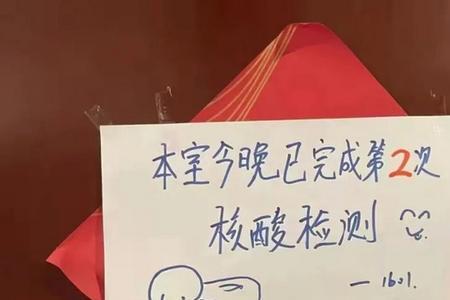 本室今晚已完成第2次
核酸检测
—1601.